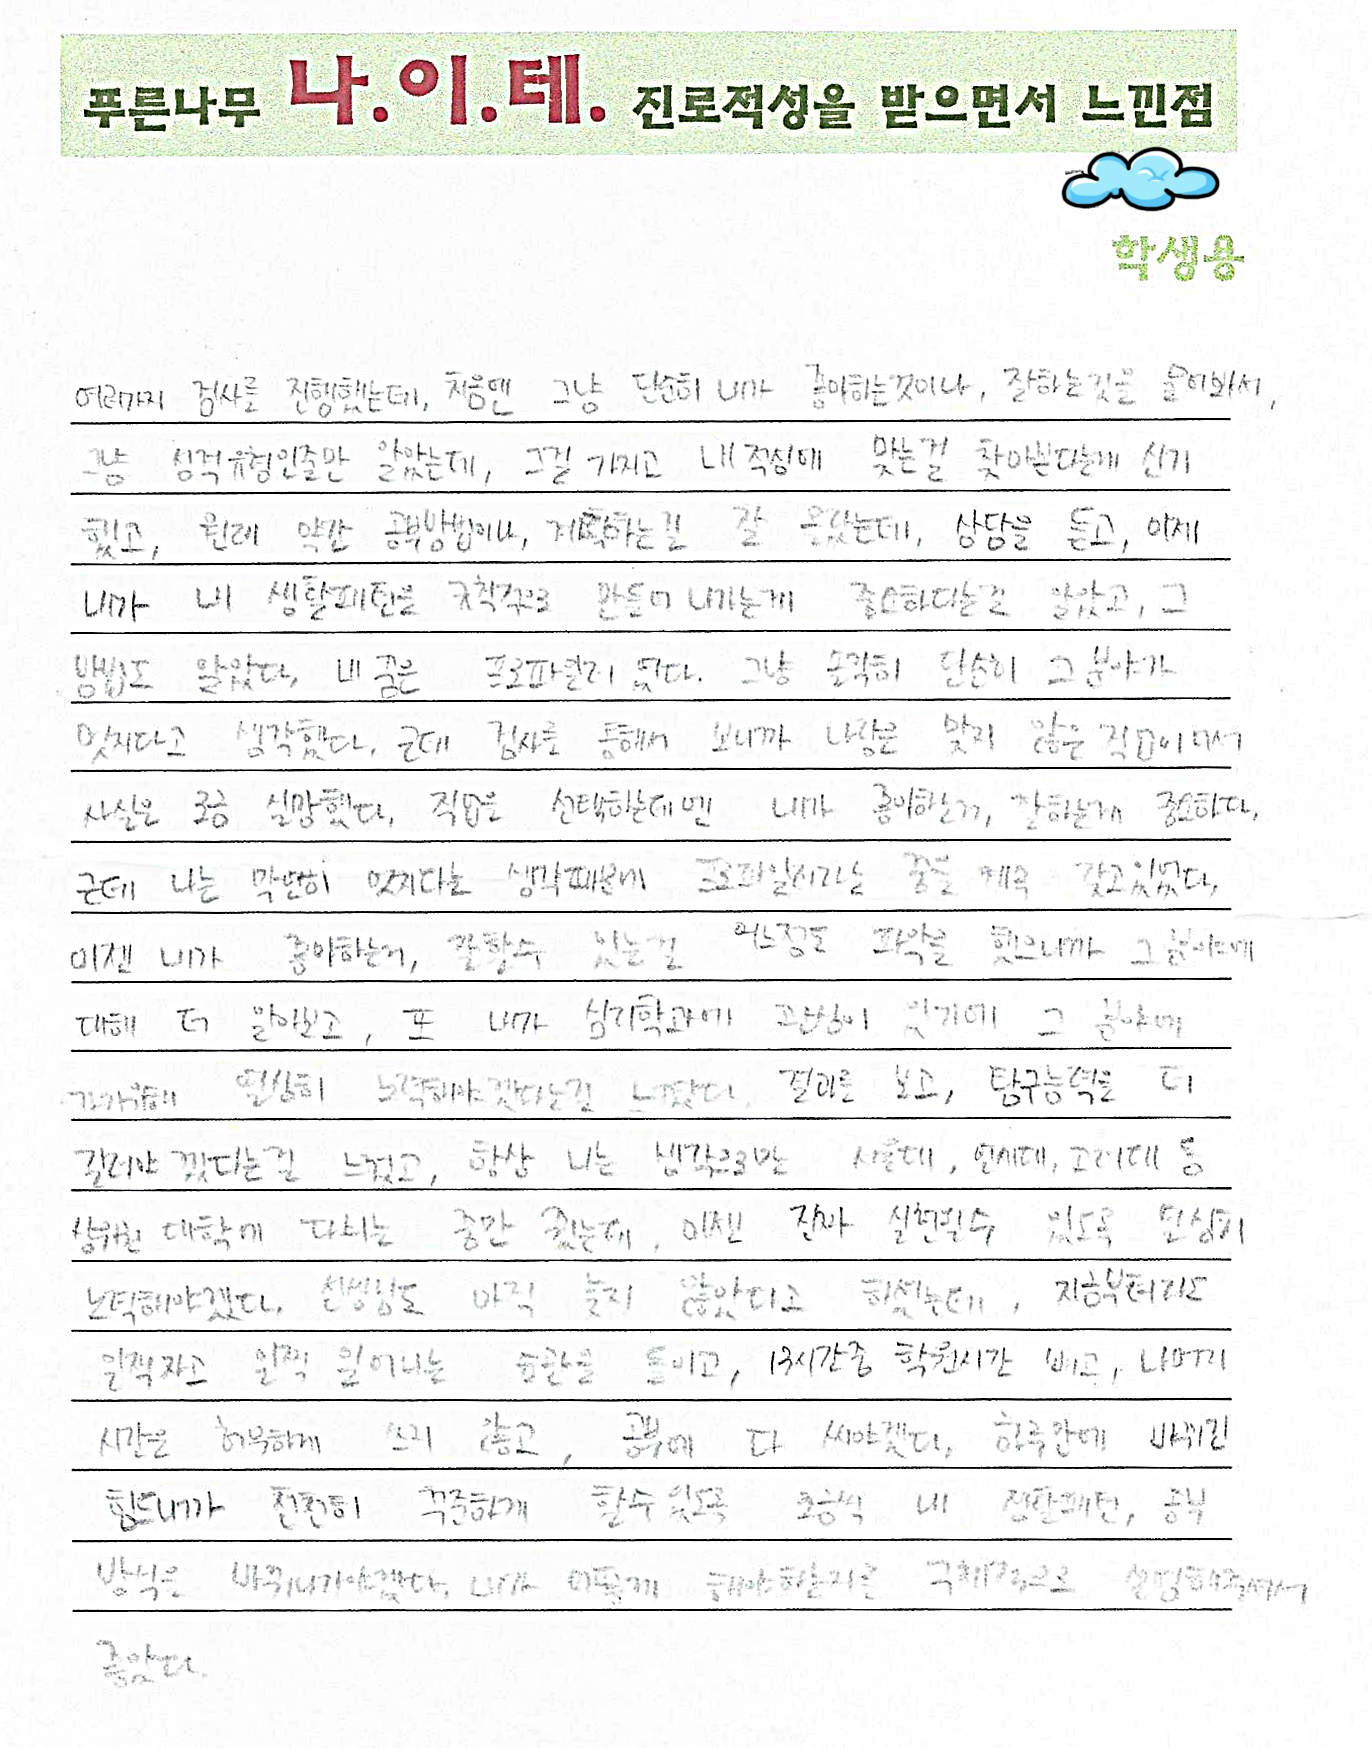 푸른나무 나.이.테. 진로적성을 받으면서 느낀점
학생용
여러가지 검사를 진행했는데, 처음엔 그냥 단순히 내가 좋아하는것이나, 잘하는것을 물어봐서,
그냥 성격유형인줄만 알았는데, 그걸 가지고 내 적성에 맞는걸 찾아본다는게 신기
했고, 원래 약간 공부방법이나, 계획하는걸 잘 몰랐는데, 상담을 듣고, 이제
내가 내 생활패턴을 규칙적으로 만들어 나가는게 중요하다는걸 알았고, 그
방법도 알았다, 내 꿈은 프로파일러 였다. 그냥 솔직히 단순히 그 분야가
멋지다고 생각했다. 근데 검사를 통해서 보니까 나랑은 맞지 않은 직업이여서
사실은 조금 실망했다, 직업을 선택하는데엔 내가 좋아하는거, 잘하는게 중요하다,
근데 나는 막연히 멋지다는 생각때문에 프로파일러라는 꿈을 계속 갖고있었다,
이젠 내가 좋아하는거, 잘할수 있는걸 어느정도 파악을 했으니까 그 분야에
대해 더 알아보고, 또 내가 심리학과에 관심이 있기에 그 분야에
가기위해 열심히 노력해야겠다는걸 느꼈다. 결과를 보고, 탐구능력을 더
길러야 겠다는걸 느꼈고, 항상 나는 생각으로만 서울대, 연세대, 고려대 등
상위권 대학에 다니는 꿈만 꿨는데, 이젠 진짜 실현될수 있도록 열심히
노력해야겠다. 선생님도 아직 늦지 않았다고 하셨는데, 지금부터라도
일찍자고 일찍 일어나는 습관을 들이고, 13시간중 학원시간 빼고, 나머지
시간은 허무하게 쓰지 않고, 공부에 다 써야겠다, 하루만에 바뀌긴
힘드니까 천천히 꾸준하게 할수있도록 조금씩 내 생활패턴, 공부
방식은 바꿔나가야겠다. 내가 어떻게 해야하는지를 구체적으로 설명해주셔서
좋았다.